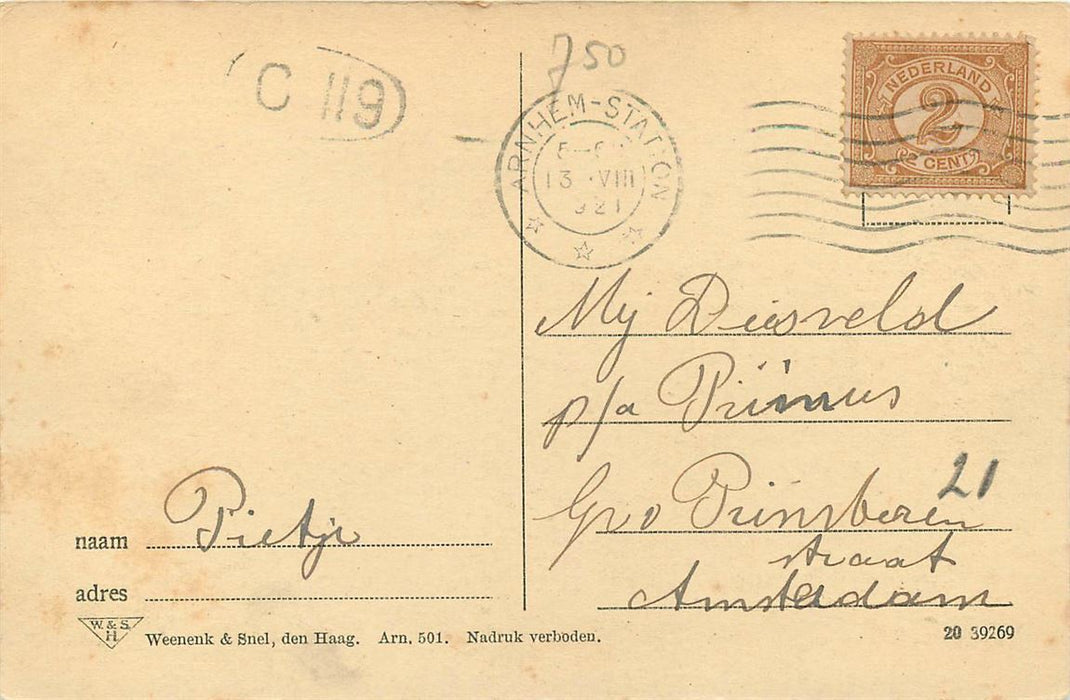 750
C 119
ARNHEM-STATION
13 VIII
921
NEDERLAND
2
2 CENT
Mej Diesveld
p/a Primus
21
Gr v Prinsteren
straat
Amsterdam
naam Pietje
adres
W. & S. H
Weenenk & Snel, den Haag. Arn. 501. Nadruk verboden.
20 39269